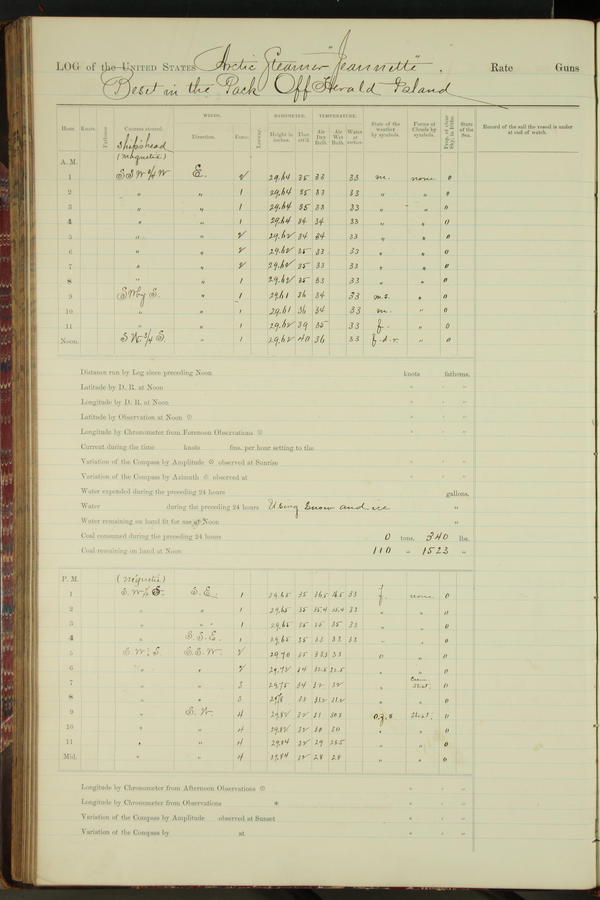 LOG of the UNITED STATES Arctic Steamer "Jeannette". Rate Guns
Beset in the Pack Off Herald Island
WINDS. BAROMETER. TEMPERATURE.
Hour. Knots. Fathoms. Courses steered. Direction. Force. Leeway. Height in inches. Ther. att'd. Air Dry Bulb. Air Wet Bulb. Water at surface. State of the weather by symbols. Forms of Clouds by symbols. Prop. of clear Sky, in 10ths. State of the Sea. Record of the sail the vessel is under at end of watch.
ship's head
A.M. (magnetic)
1 SSW 3/4 W E. 2 29.64 35 33 33 m. none 0
2 " " 1 29.64 35 33 33 " " 0
3 " " 1 29.64 35 33 33 " " 0
4 " " 1 29.64 34 34 33 " " 0
5 " " 2 29.62 34 34 33 " " 0
6 " " 2 29.62 35 33 33 " " 0
7 " " 2 29.62 35 33 33 " " 0
8 " " 1 29.62 35 33 33 " " 0
9 SW by S. " 1 29.61 36 34 33 m.s. " 0
10 " " 1 29.61 36 34 33 m. " 0
11 " " 1 29.62 39 35 33 f. " 0
Noon. " 1 29.62 40 36 33 " 0
Distance run by Log since preceding Noon knots fathoms.
Latitude by D. R. at Noon
Longitude by D. R. at Noon
Latitude by Observation at Noon
Longitude by Chronometer from Forenoon Observations
Current during the time knots fms. per hour setting to the
Variation of the Compass by Amplitude observed at Sunrise
Variation of the Compass by Azimuth observed at
Water expended during the preceding 24 hours gallons.
Water during the preceding 24 hours Using Snow and ice "
Water remaining on hand fit for use at Noon "
Coal consumed during the preceding 24 hours 0 tons, 340 lbs.
Coal remaining on hand at Noon 110 " 1523 "
P.M. (magnetic)
1 S.E. 1 29.65 35 33 f. none 0
2 " " 1 29.65 35 35.4 35.4 33 " " 0
3 " " 1 29.65 35 35 35 33 " " 0
4 " S.S.E. 1 29.65 35 33 33 33 " " 0
5 S.S.W. 2 29.70 35 33.5 33 0 " 0
6 " " 2 29.72 34 32.5 32.5 " " 0
7 " " 3 29.75 34 32 32 " 0
8 " " 3 33 31.2 31.2 " " 0
9 " S.W. 4 29.82 32 31 30.5 Strat. 0
10 " " 4 29.82 32 30 30 " " 0
11 " " 4 29.84 32 29 28.5 " " 0
Mid. " " 4 29.84 32 28 28 " " 0
Longitude by Chronometer from Afternoon Observations
Longitude by Chronometer from Observations *
Variation of the Compass by Amplitude observed at Sunset
Variation of the Compass by at